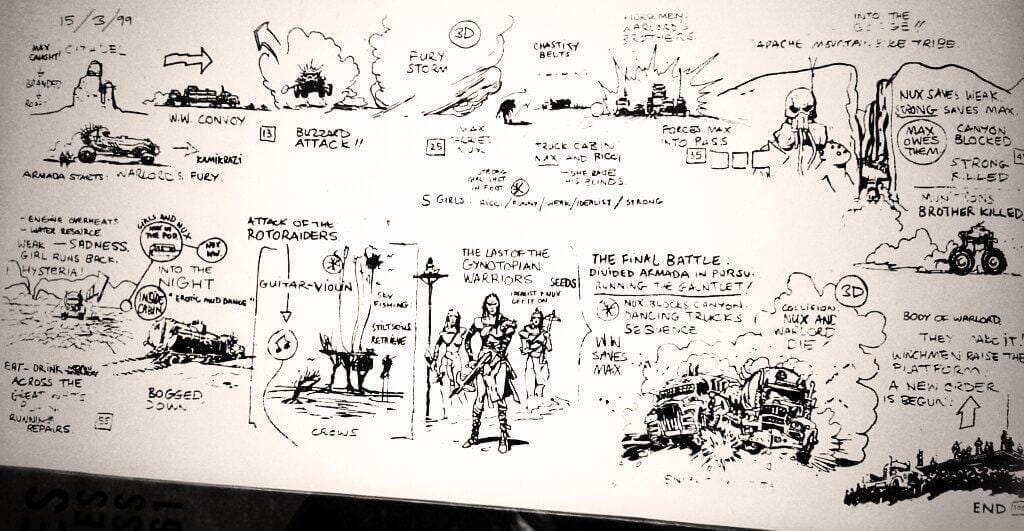 15/3/99
MAX
CAUGHT!
BRANDED
CITADEL
W.W. CONVOY
KAMIKRAZI
ARMADA STARTS: WARLORD'S FURY.
13
BUZZARD
ATTACK!!
FURY
STORM
3D
25
MAX
CHASTITY
BELTS
TRUCK CABIN
MAX AND RICCI
SHE RAISES
HIS BLINDS
STRONG
GIRL SHOT
IN FOOT
5 GIRLS: RICCI/FUNNY/WEAK/IDEALIST/STRONG
HORSEMEN:
WARLORD'S
BROTHERS
FORCES MAX
INTO PASS
35
INTO THE
GORGE!!
APACHE MOUNTAIN BIKE TRIBE.
NUX SAVES WEAK
STRONG SAVES MAX.
MAX
OWES
THEM
CANYON
BLOCKED
STRONG
KILLED
MUNITIONS
BROTHER KILLED
- ENGINE OVERHEATS
- WATER RESOURCE.
WEAK - SADNESS.
GIRL RUNS BACK.
HYSTERIA!
GIRLS AND NUX
MAX IN
THE POD
NUX
WW.
INTO THE
NIGHT
INSIDE
CABIN
"EROTIC MUD DANCE"
EAT- DRINK
ACROSS THE
GREAT WHITE
RUNNING
REPAIRS.
55
BOGGED
DOWN
ATTACK OF THE
ROTORAIDERS
GUITAR-VIOLIN
SKY
FISHING
STILTSONS
RETRIEVE
CROWS
THE LAST OF THE
GYNOTOPIAN
WARRIORS
SEEDS
IDEALIST & NUX
GET IT ON
THE FINAL BATTLE:
DIVIDED ARMADA IN PURSUIT
RUNNING THE GAUNTLET!
NUX BLOCKS CANYON
DANCING TRUCKS
SEQUENCE
WW
SAVES
MAX
3D
COLLISION:
NUX AND
WARLORD
DIE
BODY OF WARLORD.
THEY MAKE IT!
WINCHMEN RAISE THE
PLATFORM
A NEW ORDER
IS BEGUN.
END 100